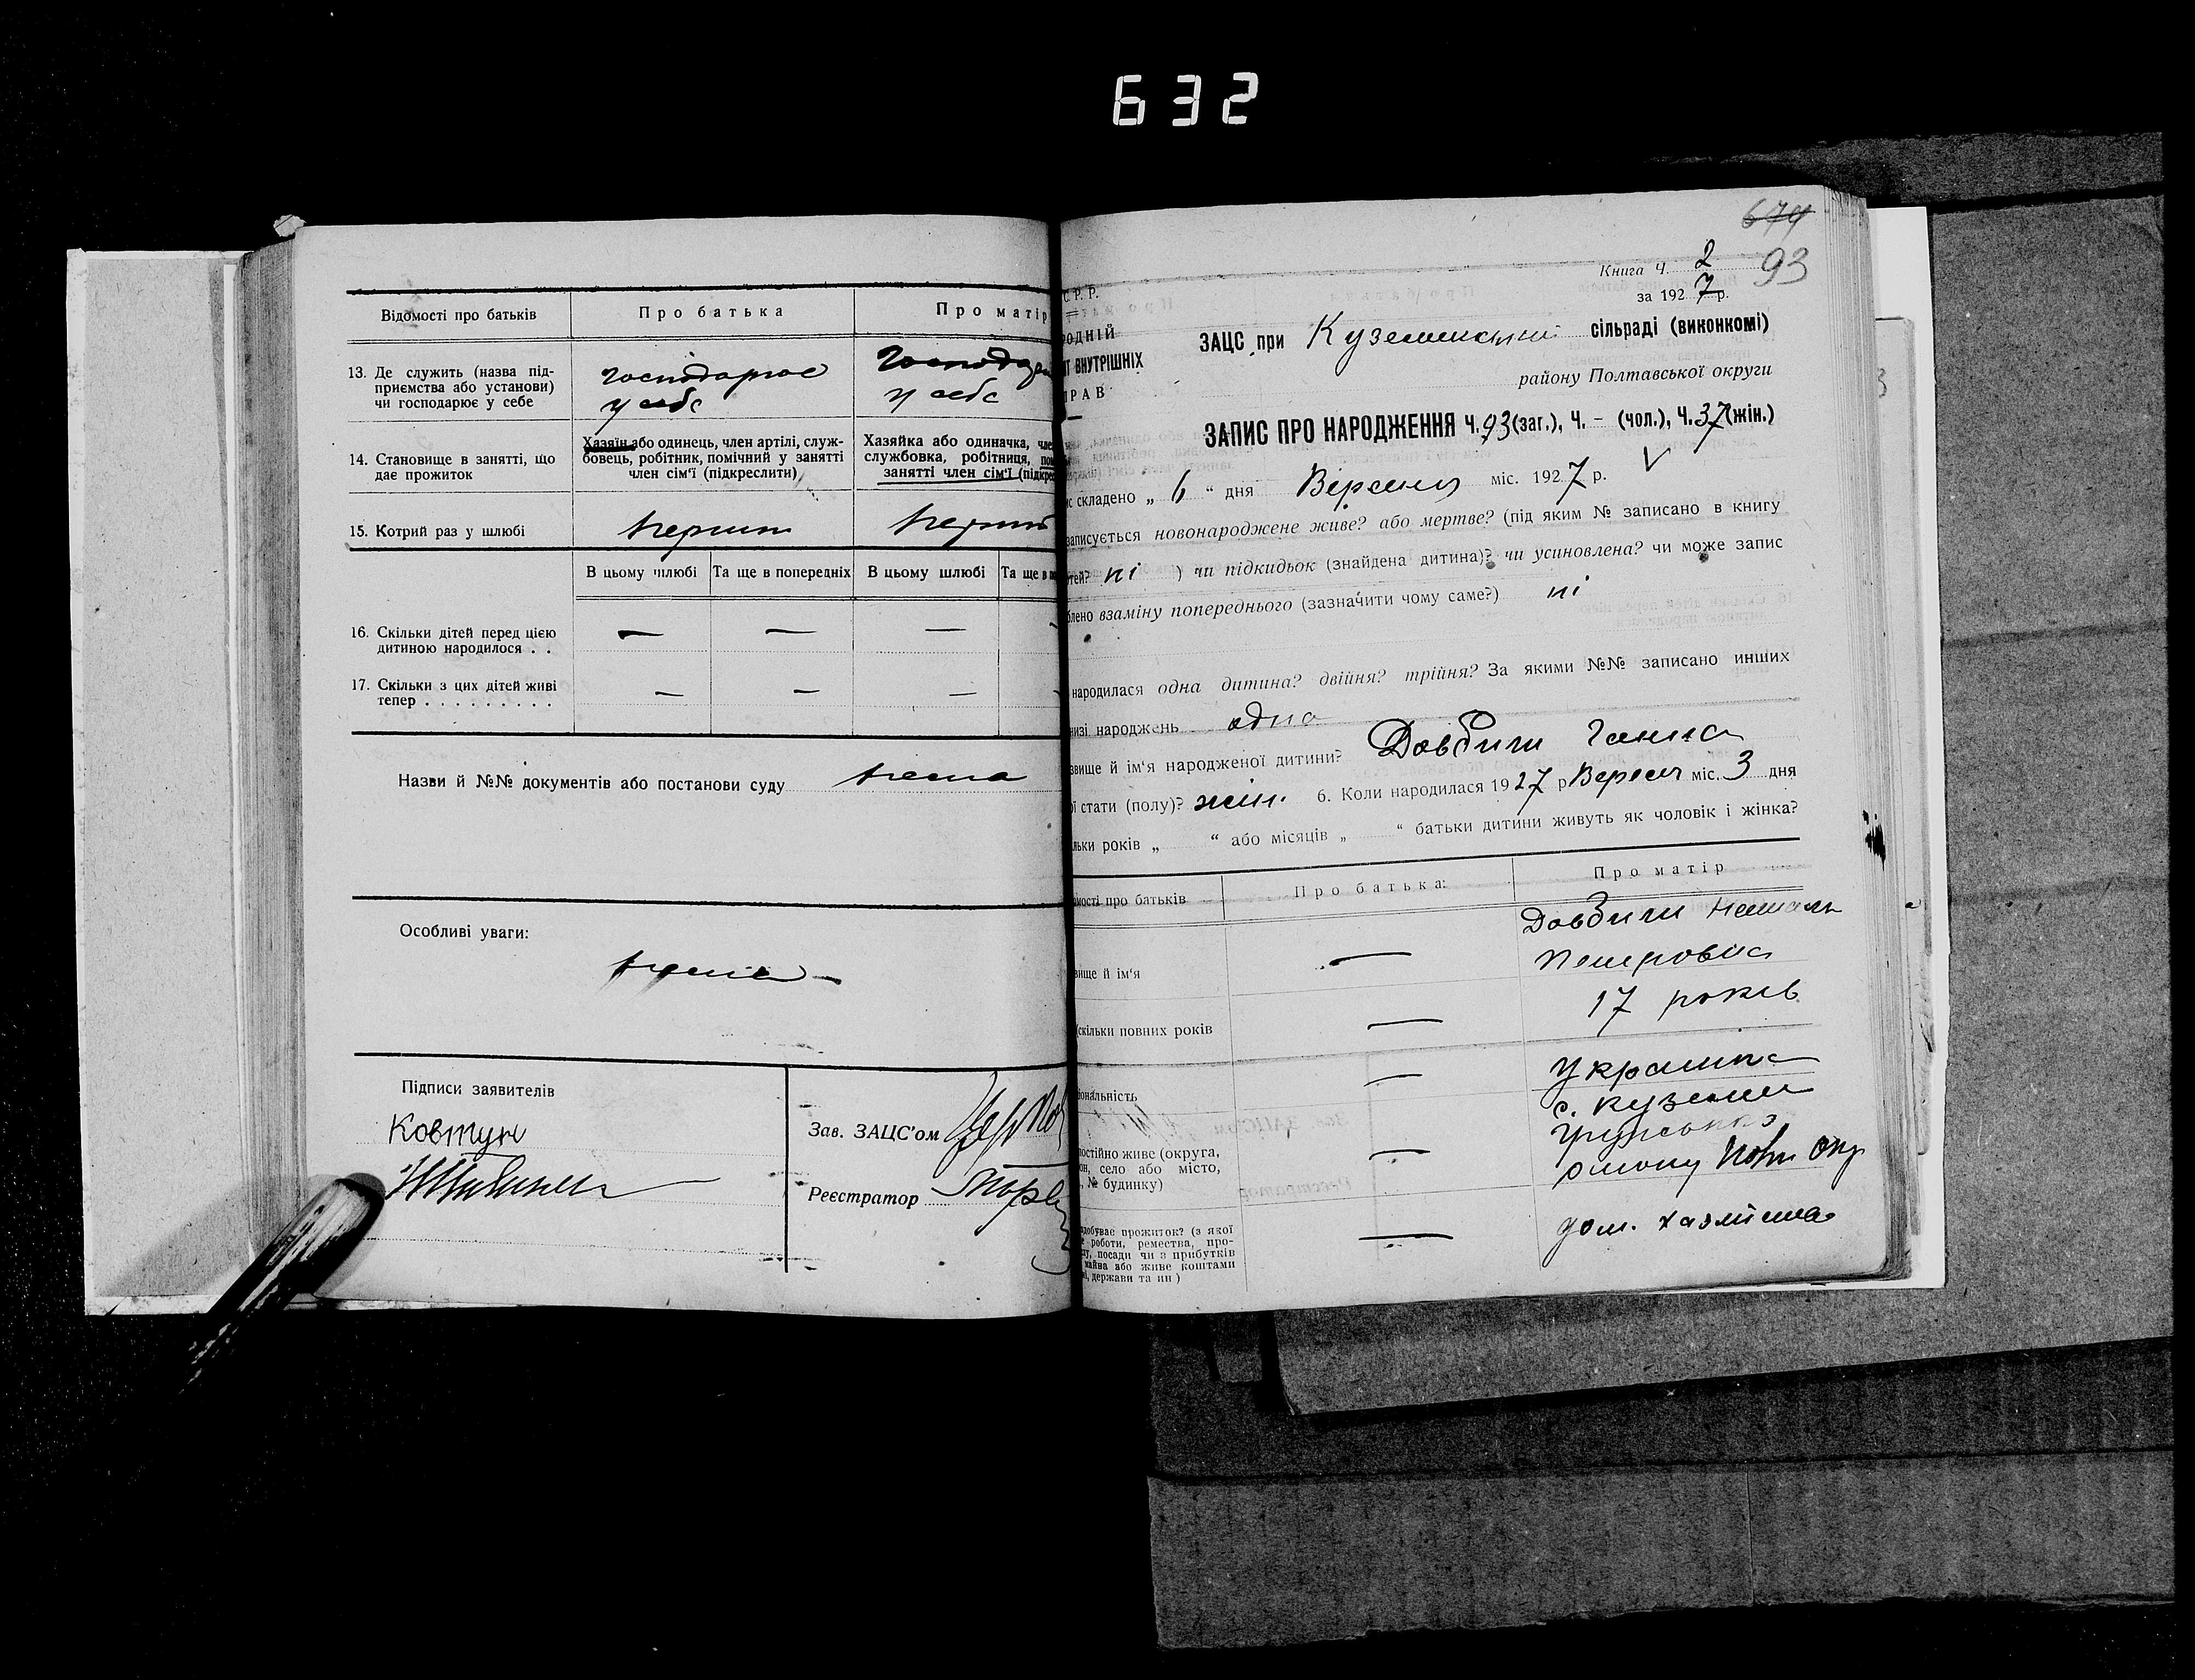 632
Відомості про батьків
Про батька
Про матір
13. Де служить (назва під-
приємства або установи)
чи господарює у себе
господарює
у себе
у себе
14. Становище в занятті, що
дає прожиток
Хазяїн або одинець, член артілі, служ-
бовець, робітник, помічний у занятті
член сім'ї (підкреслити)
Хазяйка або одиначка, чле
службовка, робітниця, пом
занятті член сім'ї (підкрес
15. Котрий раз у шлюбі
первий
В цьому шлюбі
Та ще в попередніх
В цьому шлюбі
Та ще в по
16. Скільки дітей перед цією
дитиною народилося . .
— — —
17. Скільки з цих дітей живі
тепер . . . . . . . . .
— — —
Назви й №№ документів або постанови суду нема
Особливі уваги:
нема
Підписи заявителів
Ковтун
Зав. ЗАЦС'ом
Реєстратор
674
93
Книга Ч. 2
за 1927 р.
С.Р.Р.
РОДНІЙ
Т ВНУТРІШНІХ
РАВ
ЗАЦС при сільраді (виконкомі)
району Полтавської округи
ЗАПИС ПРО НАРОДЖЕННЯ Ч. 93 (заг.), Ч. - (чол.), Ч. 37 (жін.)
с складено „ 6 “ дня Вересня міс. 1927 р.
записується новонароджене живе? або мертве? (під яким № записано в книгу
тей? ні ) чи підкидьок (знайдена дитина)? чи усиновлена? чи може запис
блено взаміну попереднього (зазначити чому саме?) ні
народилася одна дитина? двійня? трійня? За якими №№ записано инших
низі народжень одна
звище й ім'я народженої дитини? Довбиш Ганна
ї стати (полу)? жін. 6. Коли народилася 1927 р Вересн міс. 3 дня
льки років „ “ або місяців „ “ батьки дитини живуть як чоловік і жінка?
мості про батьків
Про батька:
Про матір
вище й ім'я
—
Довбиш Наталя
Петровна
скільки повних років
—
17 років
іональність
—
Украинка
постійно живе (округа,
он, село або місто,
, № будинку)
—
с. Куземи
добуває прожиток? (з якої
роботи, ремества, про-
ду, посади чи з прибутків
майна або живе коштами
і, держави та ин)
—
дом. хазяйства